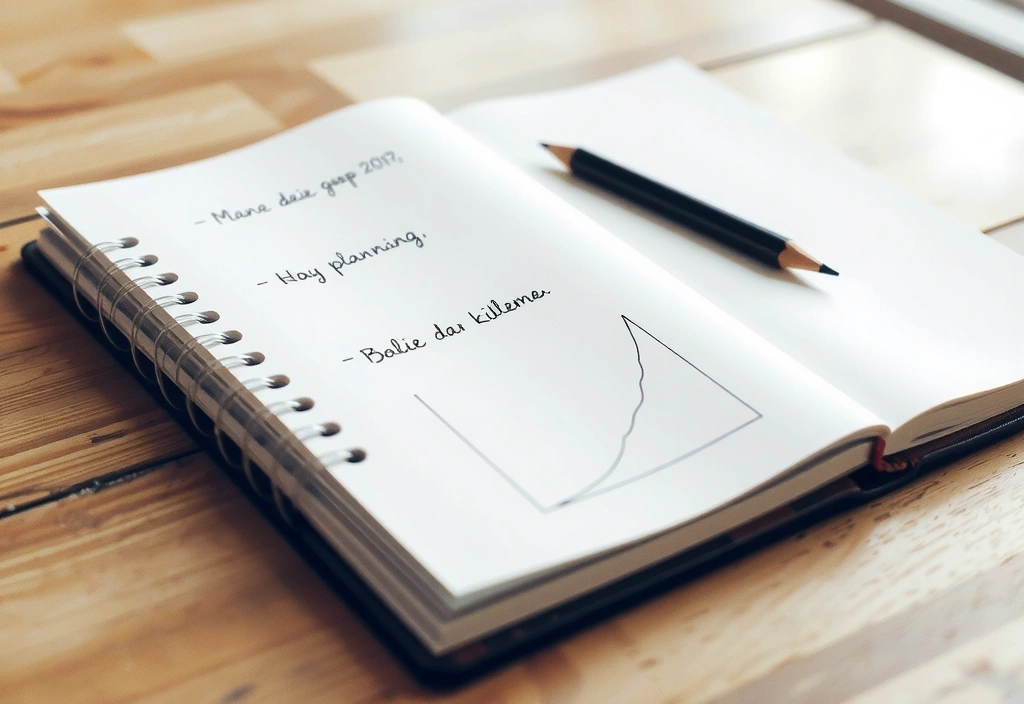 - Mane deie gosp 2017,
- Hay planning,
- Balie dar killemer